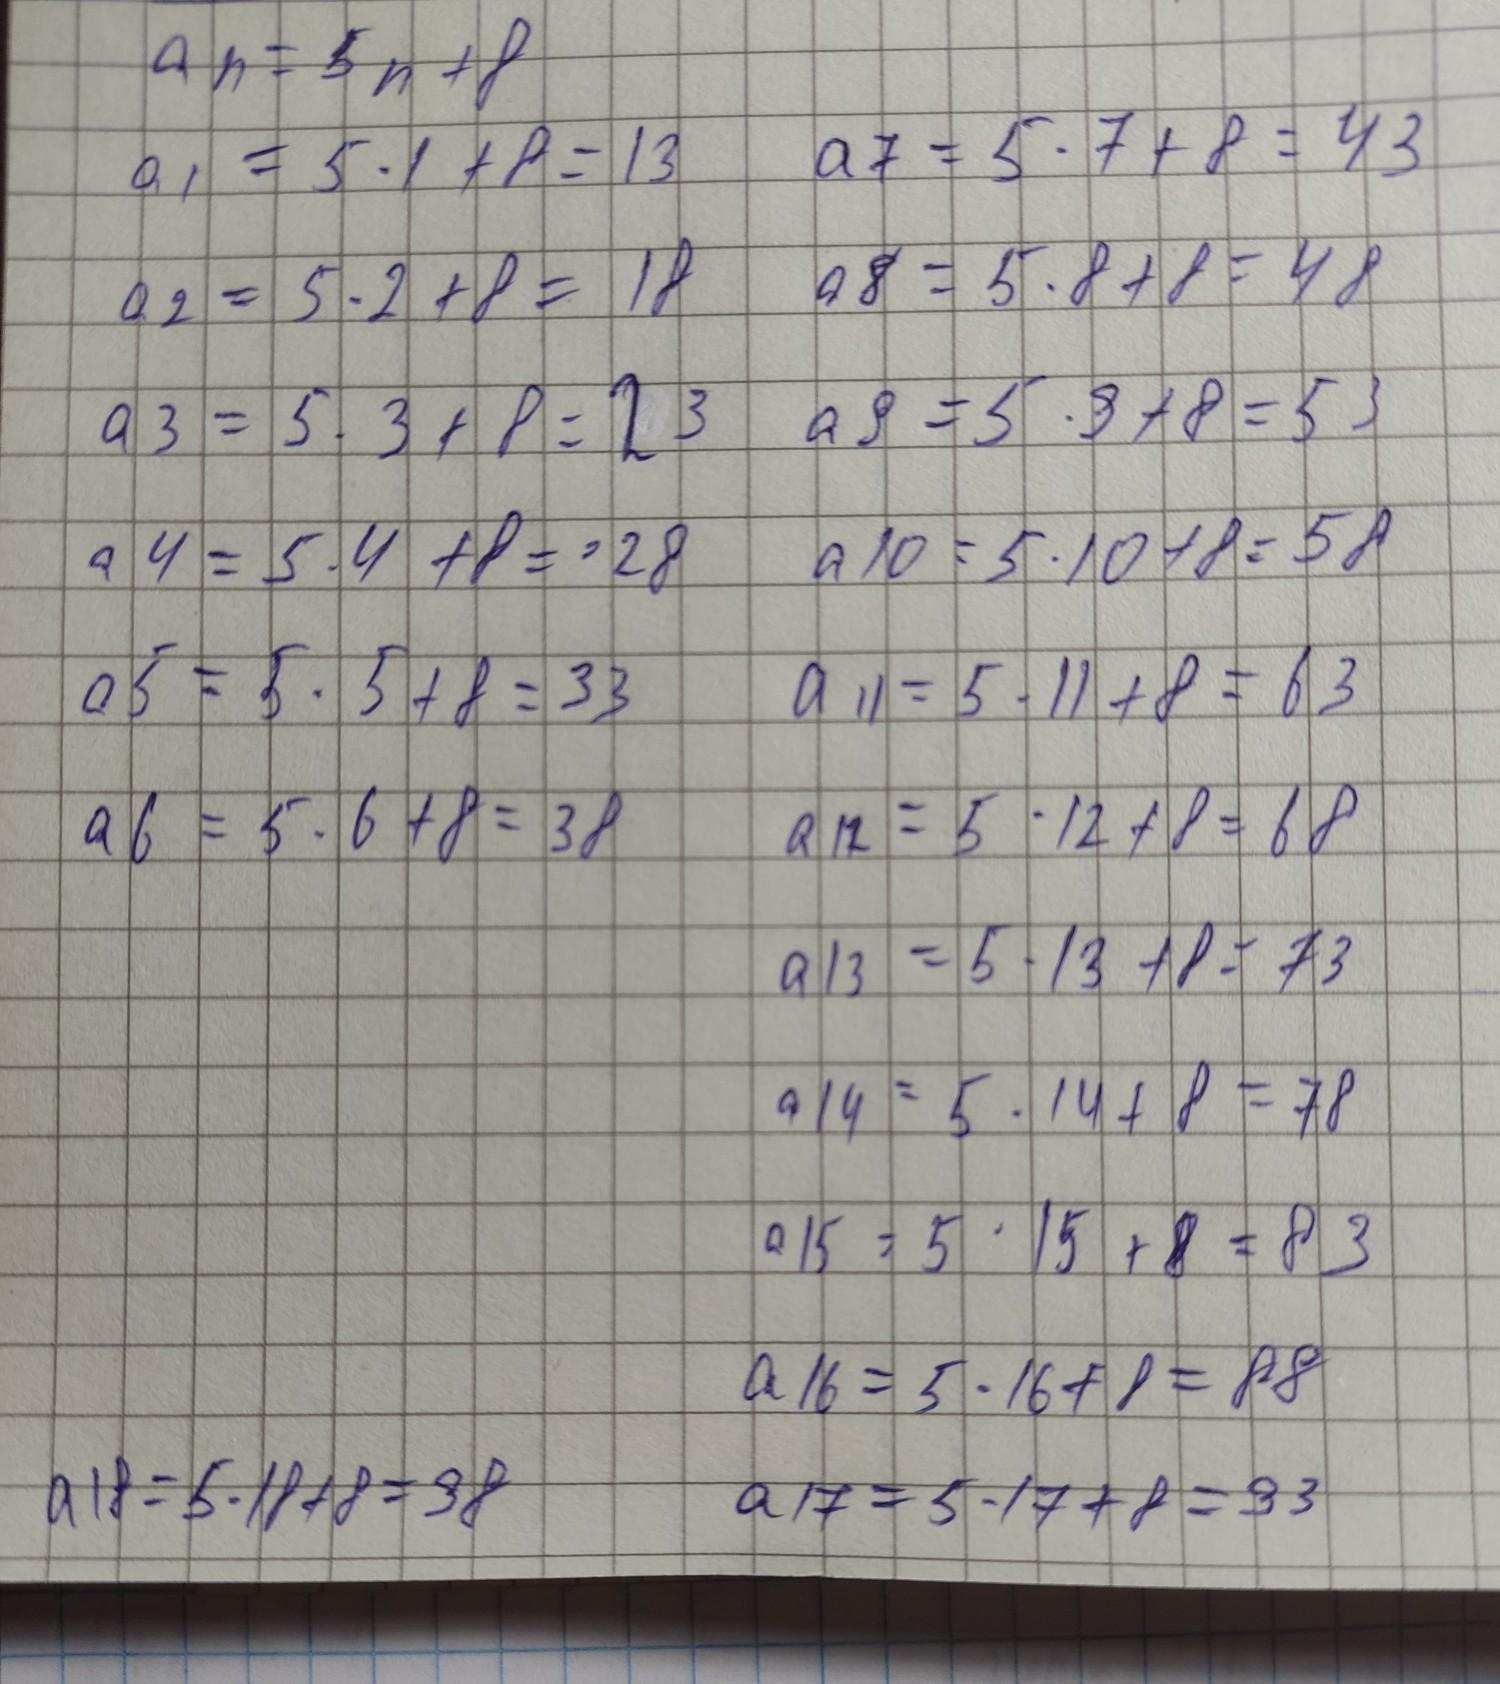 an = 5n + 8
a1 = 5·1 + 8 = 13
a2 = 5·2 + 8 = 18
a3 = 5·3 + 8 = 23
a4 = 5·4 + 8 = 28
a5 = 5·5 + 8 = 33
a6 = 5·6 + 8 = 38
a7 = 5·7 + 8 = 43
a8 = 5·8 + 8 = 48
a9 = 5·9 + 8 = 53
a10 = 5·10 + 8 = 58
a11 = 5·11 + 8 = 63
a12 = 5·12 + 8 = 68
a13 = 5·13 + 8 = 73
a14 = 5·14 + 8 = 78
a15 = 5·15 + 8 = 83
a16 = 5·16 + 8 = 88
a17 = 5·17 + 8 = 93
a18 = 5·18 + 8 = 98